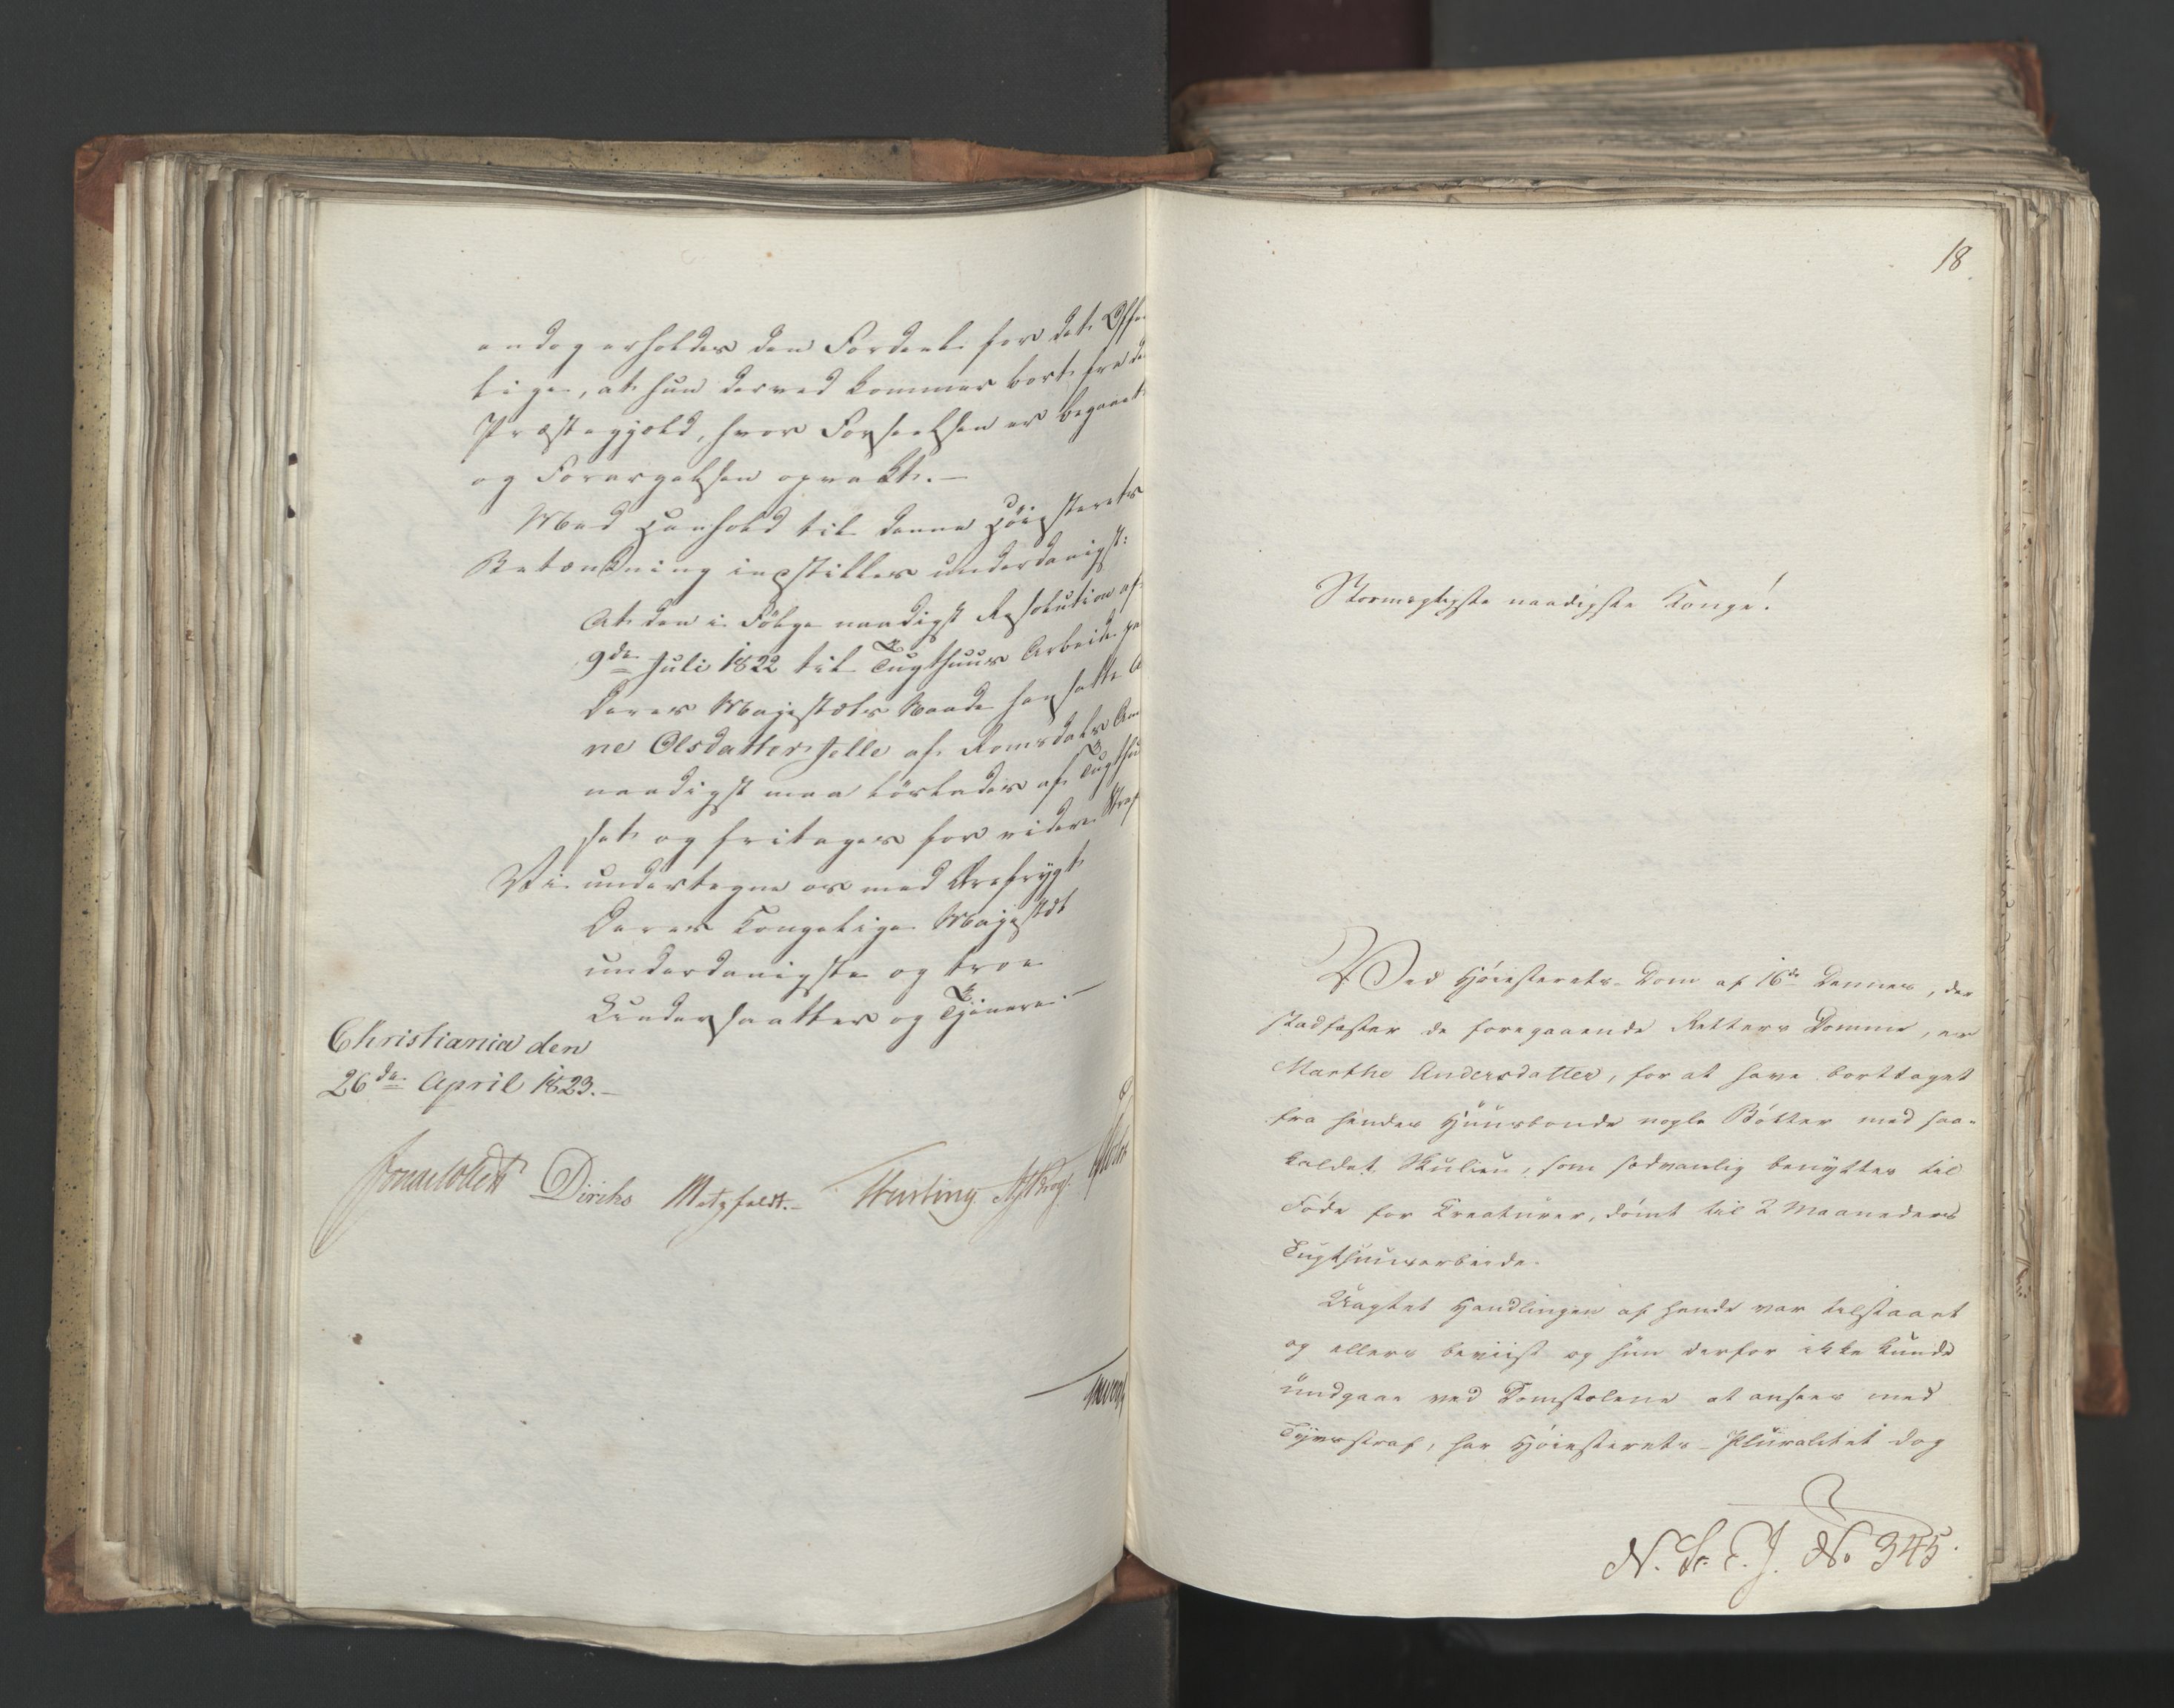 endog erholdes den Fordeel for det Offe
lige, at hun derved kommer bort fra de
Præstegjeld, hvor Forseelsen er begaaet
og Forargelsen opvakt.—
Med Henhold til denne Høiesterets
Betænkning indstilles underdanigst:
At den i Følge naadigst Resolution af
9de Juli 1822 til Tugthuus Arbeide paa
Deres Majestæts Naade hensatte
ne Olsdatter Jelle af Romsdals Am
naadigst maa løslades af Tugthu
set og fritages for videre Straf
Vi undertegne os med Ærefrygt
Deres Kongelige Majestæt
underdanigste og troe
Undersaatter og Tjenere.—
Christiania den
26de April 1823.—
Sommerhielm Diriks Motzfeldt.— Treschow Krog
18
Stormægtigste naadigste Konge!
Ved Høiesterets-Dom af 16de Dennes, der
stadfæster de foregaaende Retters Domme, er
Marthe Andersdatter, for at have borttaget
fra hendes Huusbonde nogle Bøtter med saa-
kaldet Skulien, som sædvanlig benyttes til
Føde for Creaturer, dømt til 2 Maaneders
Tugthuusarbeide.
Uagtet Handlingen af hende var tilstaaet
og ellers beviist og hun derfor ikke kunde
undgaae ved Domstolene at ansees med
Tyvsstraf, har Høiesterets-Pluralitet dog
N. St. E. J. No 345.